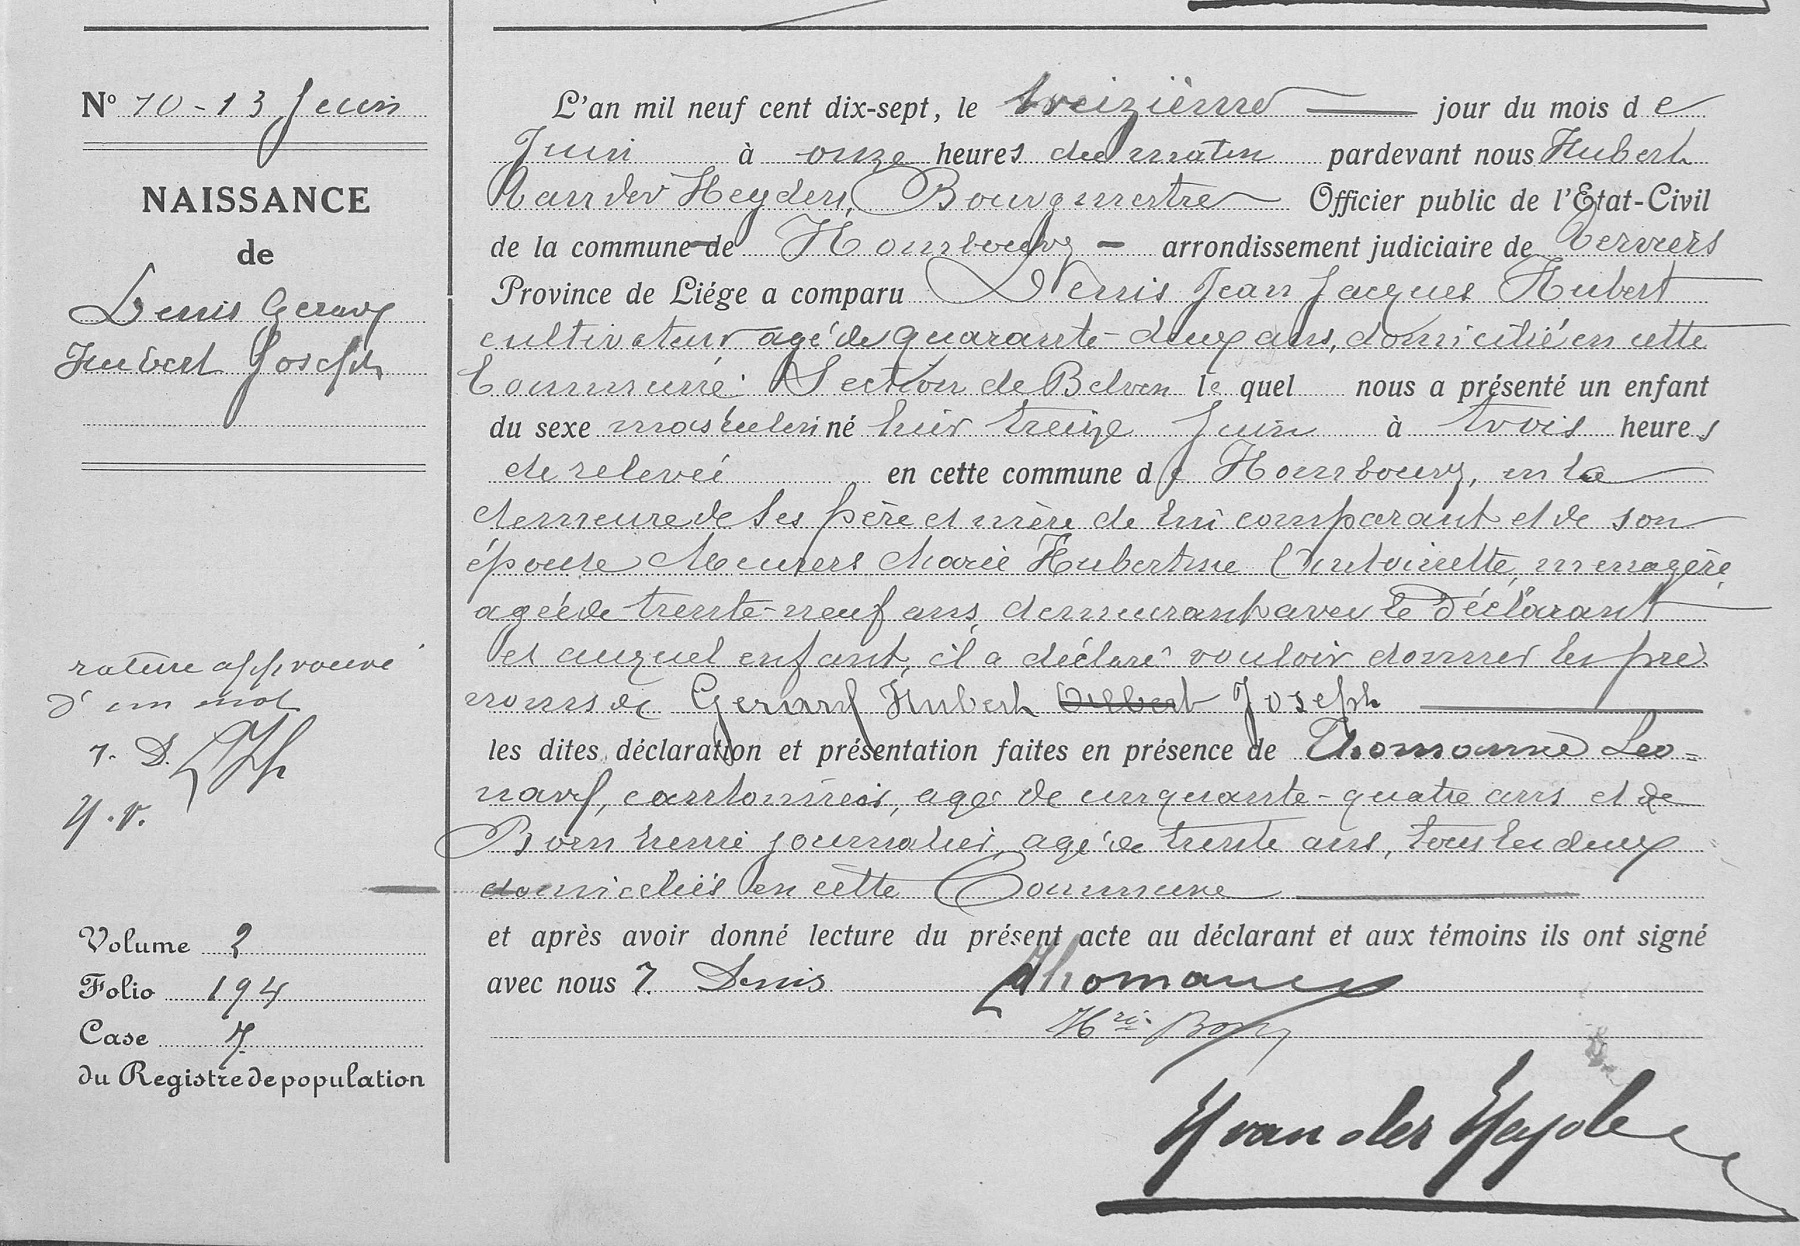 N° 10 - 13 Juin
NAISSANCE
de
Denis Gerard
Hubert Joseph
rature approuvé
d'un mot
J. D. LTh
H. v.
Volume 2
Folio 194
Case 7
du Registre de population
L'an mil neuf cent dix-sept, le treizième jour du mois de
Juin à onze heures du matin pardevant nous Hubert
Van der Heyden, Bourgmestre Officier public de l'Etat-Civil
de la commune de Hombourg - arrondissement judiciaire de Verviers
Province de Liége a comparu Denis Jean Jacques Hubert
cultivateur agé de quarante-deux ans, domicilié en cette
Commune Section de Belven le quel nous a présenté un enfant
du sexe masculin né hier treize Juin à trois heures
de relevée en cette commune de Hombourg, en la
demeure de ses père et mère de lui comparant et de son
épouse Meurers Marie Hubertine Antoinette, menagère
agée de trente-neuf ans demeurant avec le déclarant
et auquel enfant, il a déclaré vouloir donner les pré
noms de Gerard Hubert Albert Joseph
les dites déclaration et présentation faites en présence de Thomanne Leo=
nard, cantonnier, agé de cinquante-quatre ans et de
Born henri journalier, agé de trente ans, tous les deux
domiciliés en cette Commune
et après avoir donné lecture du présent acte au déclarant et aux témoins ils ont signé
avec nous J. Denis LThomanne
Hri Born
H van der Heyden